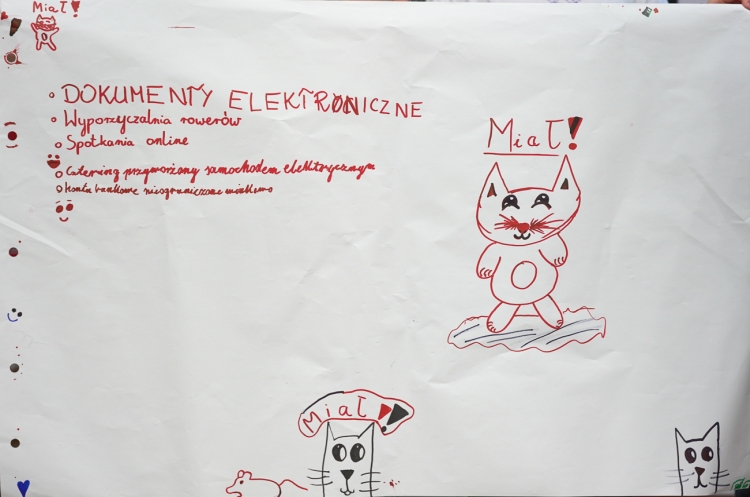 Miał!
DOKUMENTY ELEKTRONICZNE
Wyporzyczalnia rowerów
Spotkania online
Catering przyworzony samochodem elektrycznym
Konta bankowe nieograniczone wiekowo
Miał!
Miał!!